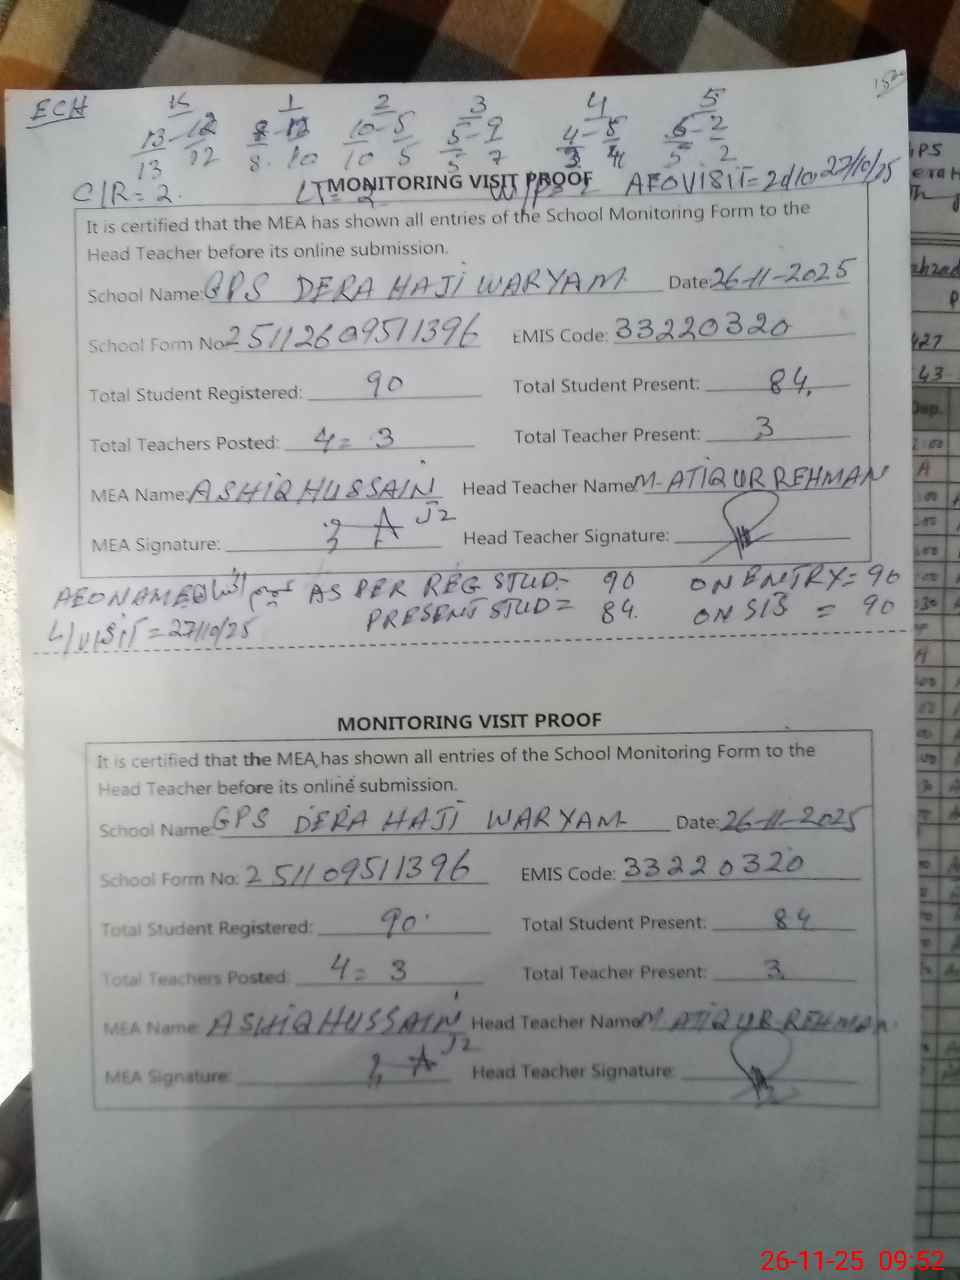 ECH K 1 2 3 4 5
13-12 8-12 10-5 5-9 4-5 6-2
13 12 8 10 10 5 5 7 3 4 5 2
C/R=2. LT=2 AEOVISIT=2d/on 27/10/25
MONITORING VISIT PROOF
It is certified that the MEA has shown all entries of the School Monitoring Form to the
Head Teacher before its online submission.
School Name: GPS DERA HAJI WARYAM Date: 26-11-2025
School Form No: 2511260951 1396 EMIS Code: 33220320
Total Student Registered: 90 Total Student Present: 84,
Total Teachers Posted: 4= 3 Total Teacher Present: 3
MEA Name: ASHIQ HUSSAIN Head Teacher Name M. ATIQUR REHMAN
MEA Signature: Head Teacher Signature:
AEONAME AS PER REG STUD:- 90 ON ENTRY= 90
L/VISIT=27/10/25 PRESENT STUD= 84. ON SIS = 90
MONITORING VISIT PROOF
It is certified that the MEA has shown all entries of the School Monitoring Form to the
Head Teacher before its online submission.
School Name: GPS DERA HAJI WARYAM Date: 26-11-2025
School Form No: 251109511396 EMIS Code: 33220320
Total Student Registered: 90 Total Student Present: 84
Total Teachers Posted: 4= 3 Total Teacher Present: 3
MEA Name: ASHIQ HUSSAIN Head Teacher Name M ATIQUR REHMAN.
MEA Signature: Head Teacher Signature:
26-11-25 09:52